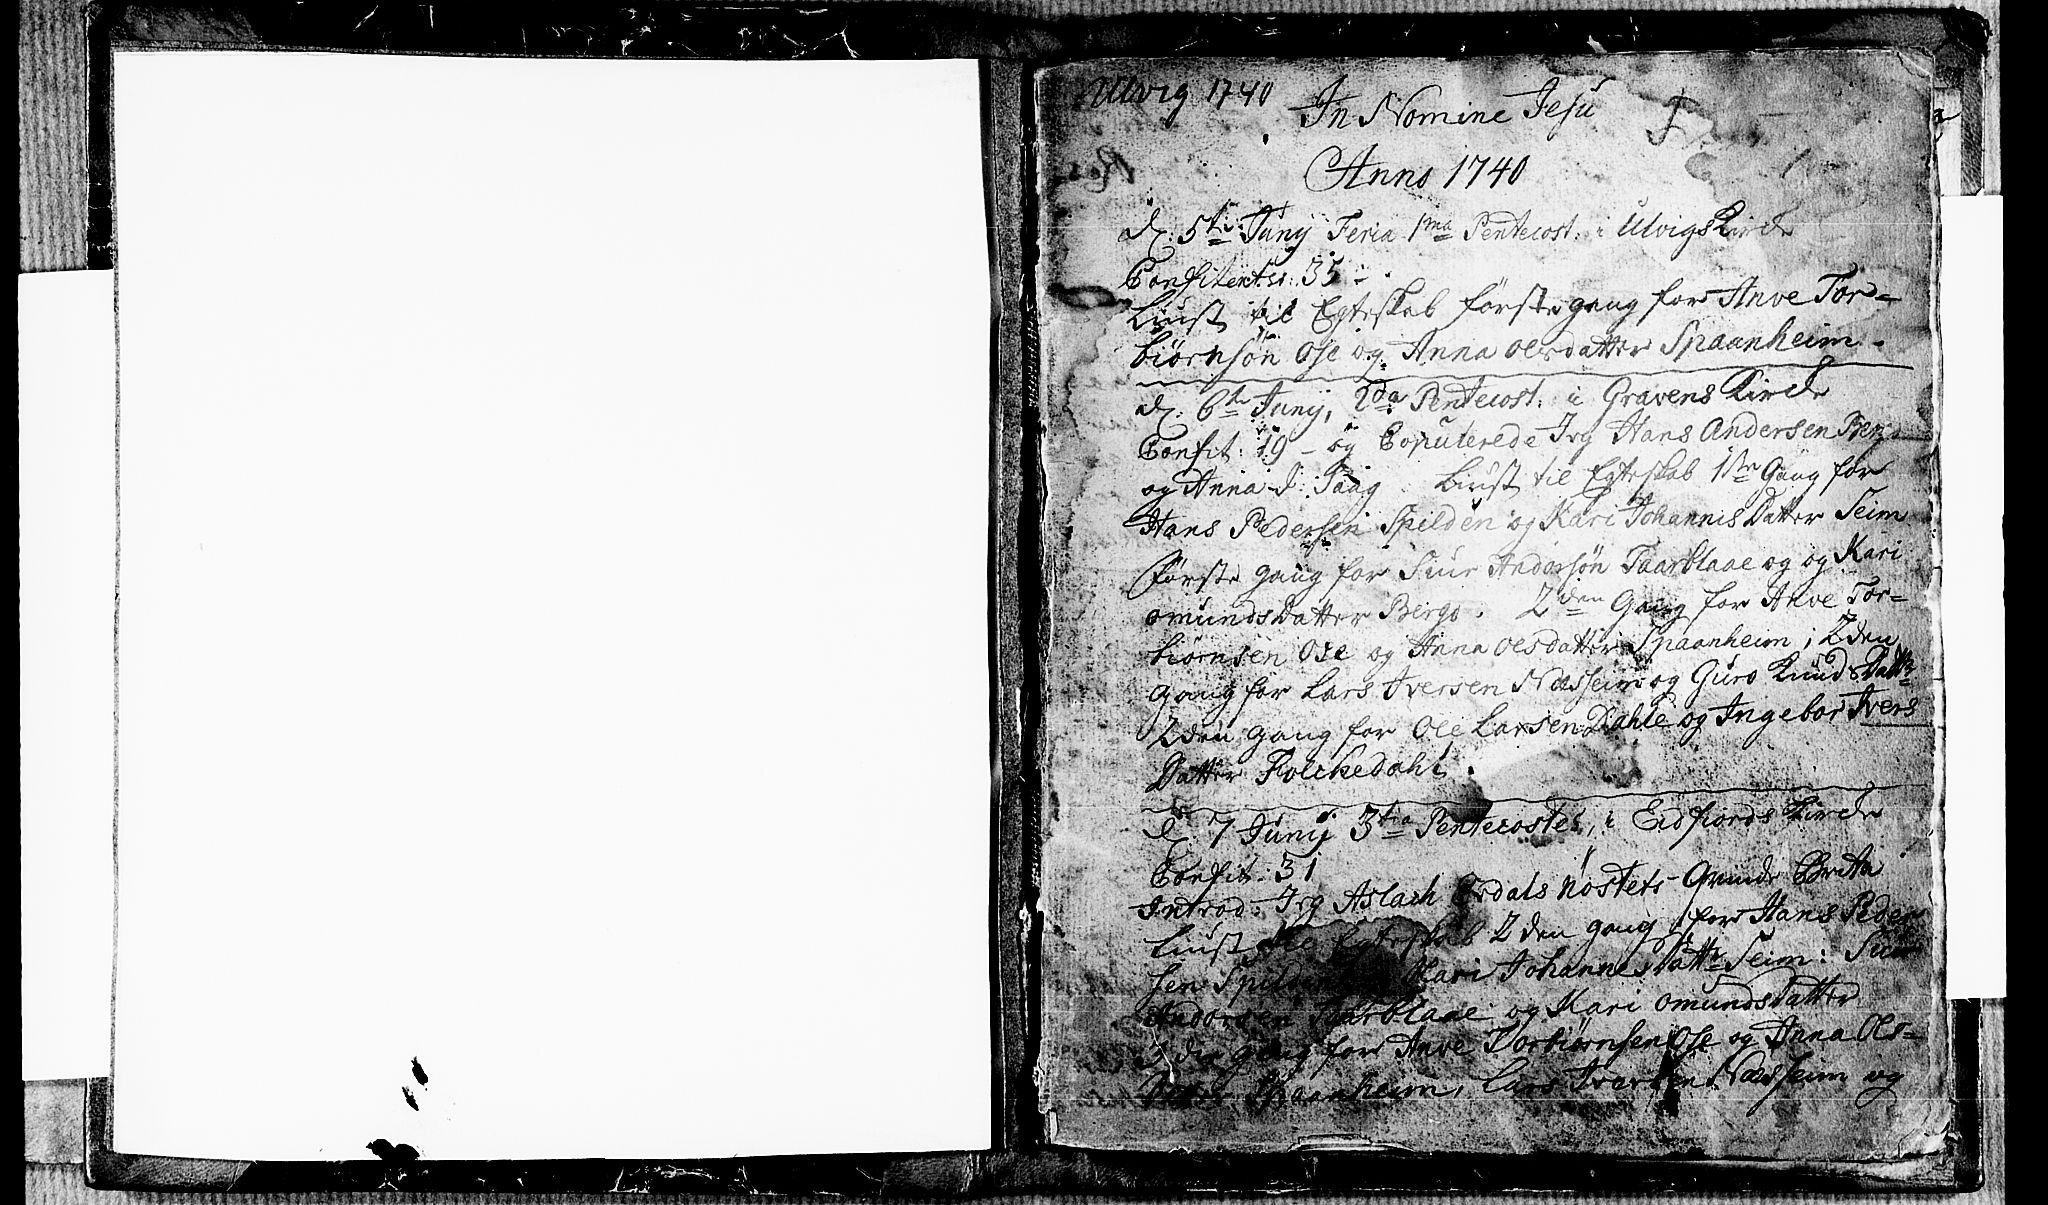 Ulvig 1740
In Nomine Jesu
Anno 1740
d: 5te Junij Feria 1ma Pentecost: i Ulvigs Kirche
Confitentes: 35
Liust til Egteskab første gang for Anve Tor-
biørnsøn Ose og Anna Olsdatter Spaanheim.
d: 6te Junij, 2da Pentecost: i Gravens Kirche
Confit: 19 - og Copulerede Jeg Hans Andersen
og Anna d: Liust til Egteskab 1ste Gang for
Hans Pedersen Spilden og Kari Johannis Datter Seim
første gang for Siur Andorsøn Taarblaae og og Kari
omunds Datter Berge. 2den Gang for Anve Tor-
biørnsen Ose og Anna Olsdatter Spaanheim; 2den
gang for Lars Iversen Næsheim og Guro Knuds Dattr
2den gang for Ole Larsen Dahle og Ingebor Ivers
Datter Folckedahl.
d: 7 Junij 3tia Pentecostes, i Eidfiords Kirche
Confit: 31
Introd: Jeg Aslach Erdals Qvinde Brita
Liust til Egteskab 2den gang for Hans Peder
sen Spilden Kari Johannes Dattr Seim: Siur
Andorsen Taarblaae og Kari omunds Datter
3die gang for Anve Torbiørnsen Ose og Anna Ols-
Datter Spaanheim, Lars Iversen Næsheim og